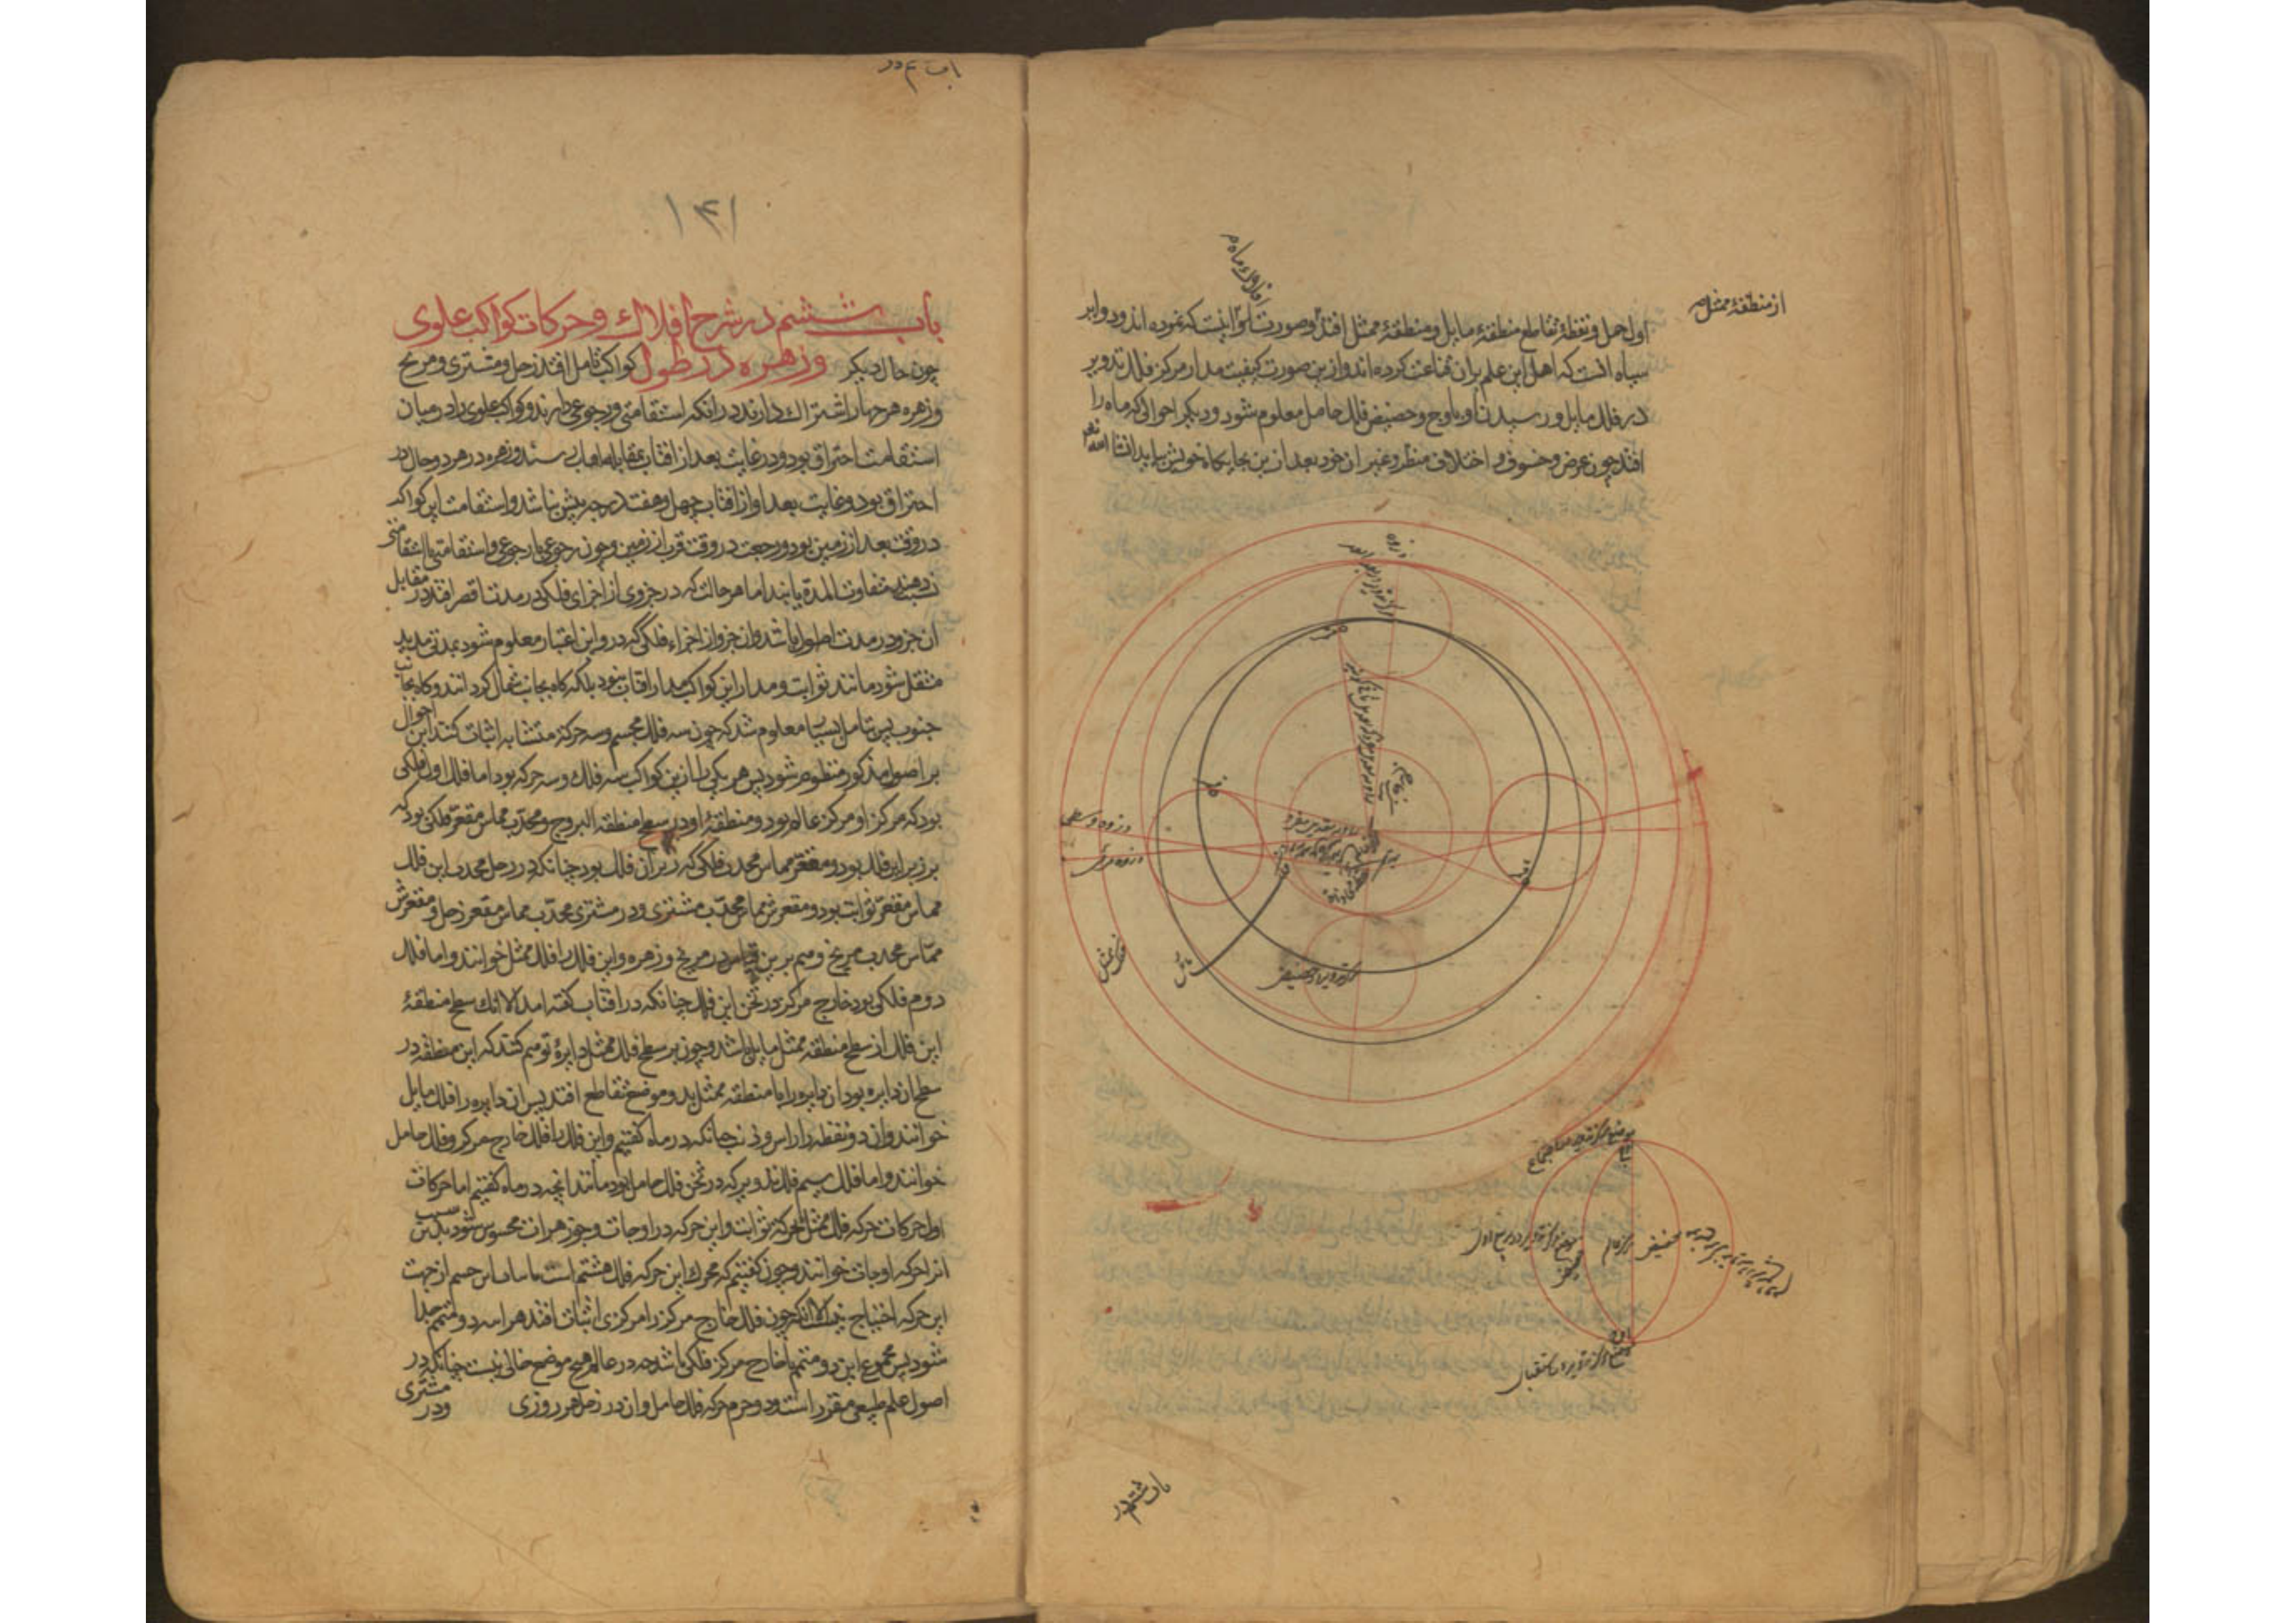 افلاک ماه
اول حمل و نقطهٔ تقاطع منطقهٔ مایل و منطقهٔ ممثل افتد و صورت اینست که نموده اند و دوایر
از منطقهٔ ممثل
سیاه انست که اهل این علم بران قناعت کرده اند و ازین صورت کیفیت مدار مرکز فلک تدویر
در فلک مایل و رسیدن او باوج و حضیض فلک حامل معلوم شود و دیگر احوالی که ماه را
افتد چون عرض و خسوف و اختلاف منظر و غیر ان خود بعد ازین بجایگاه خویش بیاید انشا الله
ذروه
ذروه وسطی
ذروه مرئی
مایل
مرکز تدویر در حضیض
مرکز عالم
حضیض
باب ششم در
باب ۶ در
۱۴۱
باب ششم در شرح افلاک و حرکات کواکب علوی
و زهره در طول
چون حال دیگر کواکب تامل افتد زحل و مشتری و مریخ
و زهره هر چهار اشتراک دارند در انکه استقامتی و رجوعی دارند و کواکب علوی را در میان
استقامت احتراق بود و در غایت بعد از افتاب بمقابله افتاب رسند و زهره در هر دو حال در
احتراق بود و غایت بعد او از افتاب چهل و هفت درجه بیش نباشد و استقامت این کواکب
در وقت بعد از زمین بود و رجعت در وقت قرب از زمین و چون رجوعی با رجوعی و استقامتی با استقامتی
نسبت دهند متفاوت المدة یابند اما هر حالت که در جزوی از اجزای فلکی در مدت اقصر افتد در مقابل
ان جزو در مدت اطول باشد و ان جزو از اجزاء فلکی که درو این اعتبار معلوم شود بمدتی مدید
منتقل شود مانند ثوابت و مدار این کواکب مدار افتاب نبود بلکه گاه بجانب شمال گرد انند و گاه بجانب
جنوب پس بتامل بسیار معلوم شد که چون سه فلک مجسم و سه حرکة متشابه اثبات کنند این احوال
بر اصول مذکور منظوم شود پس هر یکی را ازین کواکب سه فلک و سه حرکه بود اما فلک اول فلکی
بود که مرکز او مرکز عالم بود و منطقهٔ او در سطح منطقة البروج و محدب مماس مقعر فلکی بود که
برزبر این فلک بود و مقعر مماس محدب فلکی که زیر ان فلک بود چنانکه در زحل محدب این فلک
مماس مقعر ثوابت بود و مقعرش مماس محدب مشتری و در مشتری محدب مماس مقعر زحل و مقعرش
مماس محدب مریخ و هم برین قیاس در مریخ و زهره و این فلک را فلک ممثل خوانند و اما فلک
دوم فلکی بود خارج مرکز در ثخن این فلک چنانکه در افتاب گفته امد الا انک سطح منطقهٔ
این فلک از سطح منطقه ممثل مایل باشد و چون بر سطح فلک ممثل دایرهٔ توهم کنند که این منطقه در
سطح ان دایره بود ان دایره را با منطقه ممثل بدو موضع تقاطع افتد پس ان دایره را فلک مایل
خوانند و ان دو نقطه را راس و ذنب چنانکه در ماه گفتیم و این فلک را فلک خارج مرکز و فلک حامل
خوانند و اما فلک سیم فلک تدویر که در ثخن فلک حامل بود مانند انچه در ماه گفتیم اما حرکات
اول حرکات حرکه فلک ممثل بحرکه ثوابت و این حرکه در اوجات و جوزهرات محسوس شود بدین سبب
انرا حرکه اوجات خوانند و چون گفتیم که محرک این حرکه فلک هشتم است ما را باین جسم از جهت
این حرکه احتیاج نیست الا انکه چون فلک خارج مرکز را مرکزی اثبات افتد هر اینه دو متمم جدا
شود پس مجموع این دو متمم با خارج مرکز فلکی باشد چه در عالم هیچ موضع خالی نیست چنانکه در
اصول علم طبیعی مقرر است و دوم حرکه فلک حامل و ان در زحل هر روزی
و در مشتری